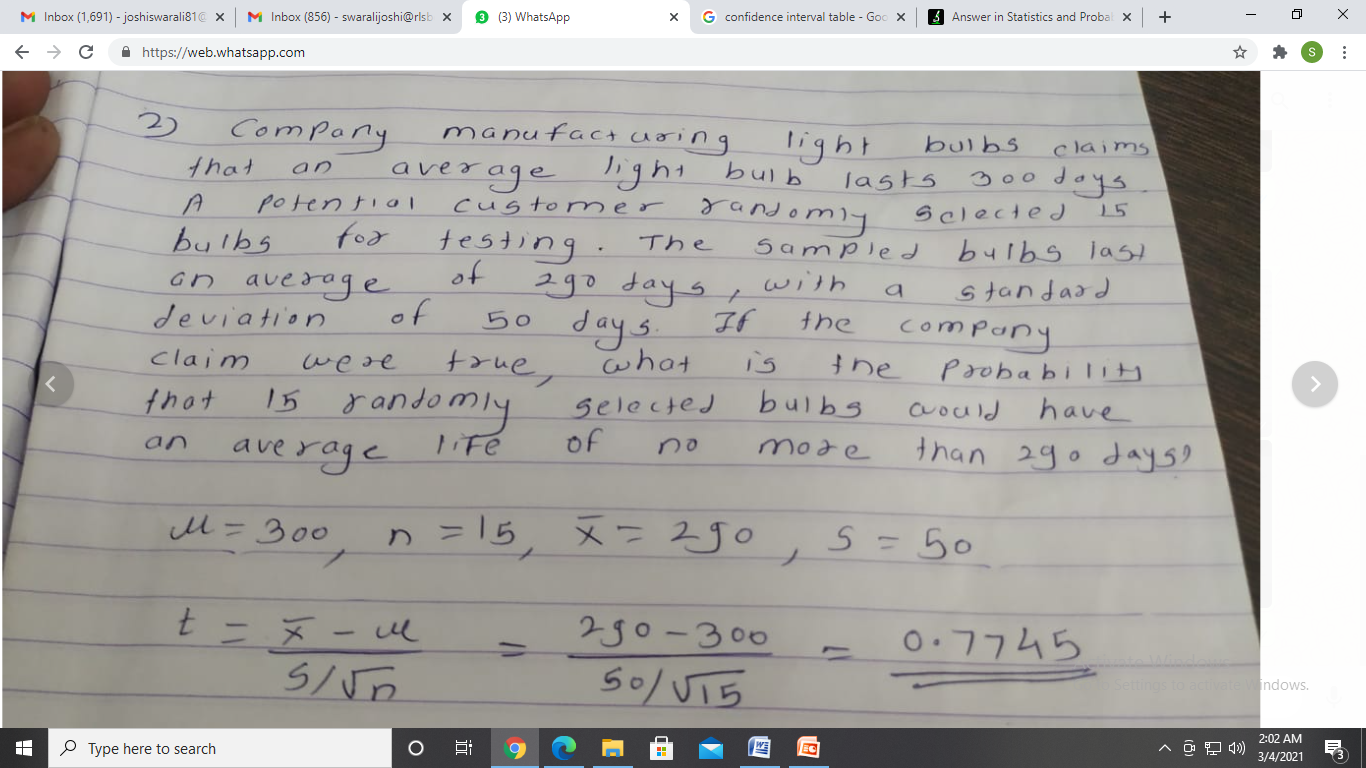 Inbox (1,691) - joshiswarali81@
Inbox (856) - swaralijoshi@rlsb
(3) WhatsApp
confidence interval table - Goo
Answer in Statistics and Probal
https://web.whatsapp.com
S
2) Company manufacturing light bulbs claims
that an average light bulb lasts 300 days.
A potential customer randomly selected 15
bulbs for testing. The sampled bulbs last
an average of 290 days, with a standard
deviation of 50 days. If the company
claim were true, what is the probability
that 15 randomly selected bulbs would have
an average life of no more than 290 days?
μ = 300, n = 15, x̄ = 290, s = 50
t = x̄ - μ / s/√n = 290 - 300 / 50/√15 = 0.7745
Activate Windows
Settings to activate Windows.
Type here to search
2:02 AM
3/4/2021
3